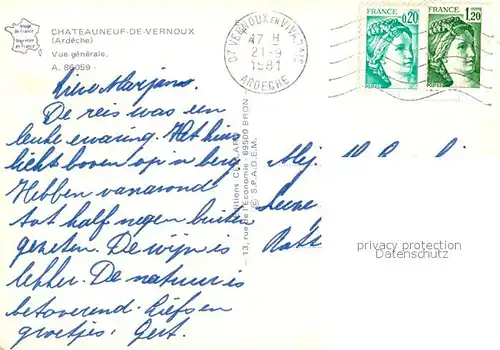 Image de France
Imprimée en France
CHATEAUNEUF-DE-VERNOUX
(Ardèche)
Vue générale.
A. 86059 -
07 VERNOUX EN VIVARAIS
17 H
21-9
1981
ARDECHE
FRANCE
0,20
FRANCE
1,20
Lieve Marjans.
De reis was een
leuke ervaring. Het huis
licht boven op 'n berg.
Hebben vanavond
tot half negen buiten
gezeten. De wijn is
lekker. De natuur is
betoverend. Liefs en
groetjes. Gert.
Editions
13, rue de l'Economie - 69500 BRON
© S.P.A.D.E.M.
Mej.
privacy protection
Datenschutz